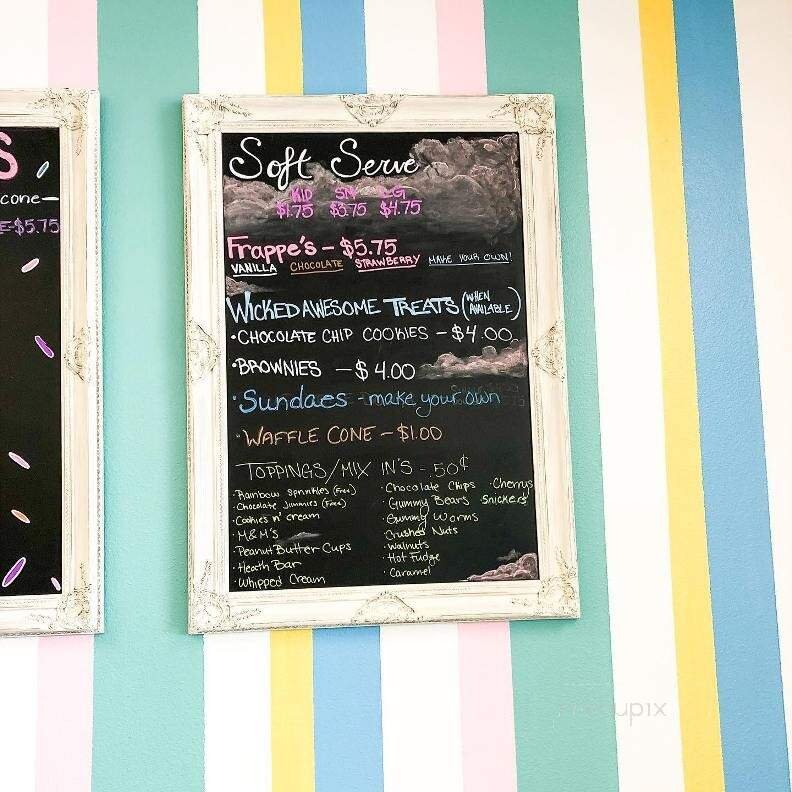 S
cone-
E-$5.75
Soft Serve
KID SM LG
$1.75 $3.75 $4.75
Frappe's - $5.75
VANILLA CHOCOLATE STRAWBERRY MAKE YOUR OWN!
WICKED AWESOME TREATS (WHEN AVAILABLE)
• CHOCOLATE CHIP COOKIES - $4.00
• BROWNIES - $4.00
• Sundaes - make your own
• WAFFLE CONE - $1.00
TOPPINGS/MIX IN'S - 50¢
• Rainbow Sprinkles (Free)
• Chocolate Jimmies (Free)
• Cookies n' cream
• M&M's
• Peanut Butter Cups
• Heath Bar
• Whipped Cream
• Chocolate Chips • Cherrys
• Gummy Bears Snickers
• Gummy Worms
• Crushed Nuts
• Walnuts
• Hot Fudge
• Caramel